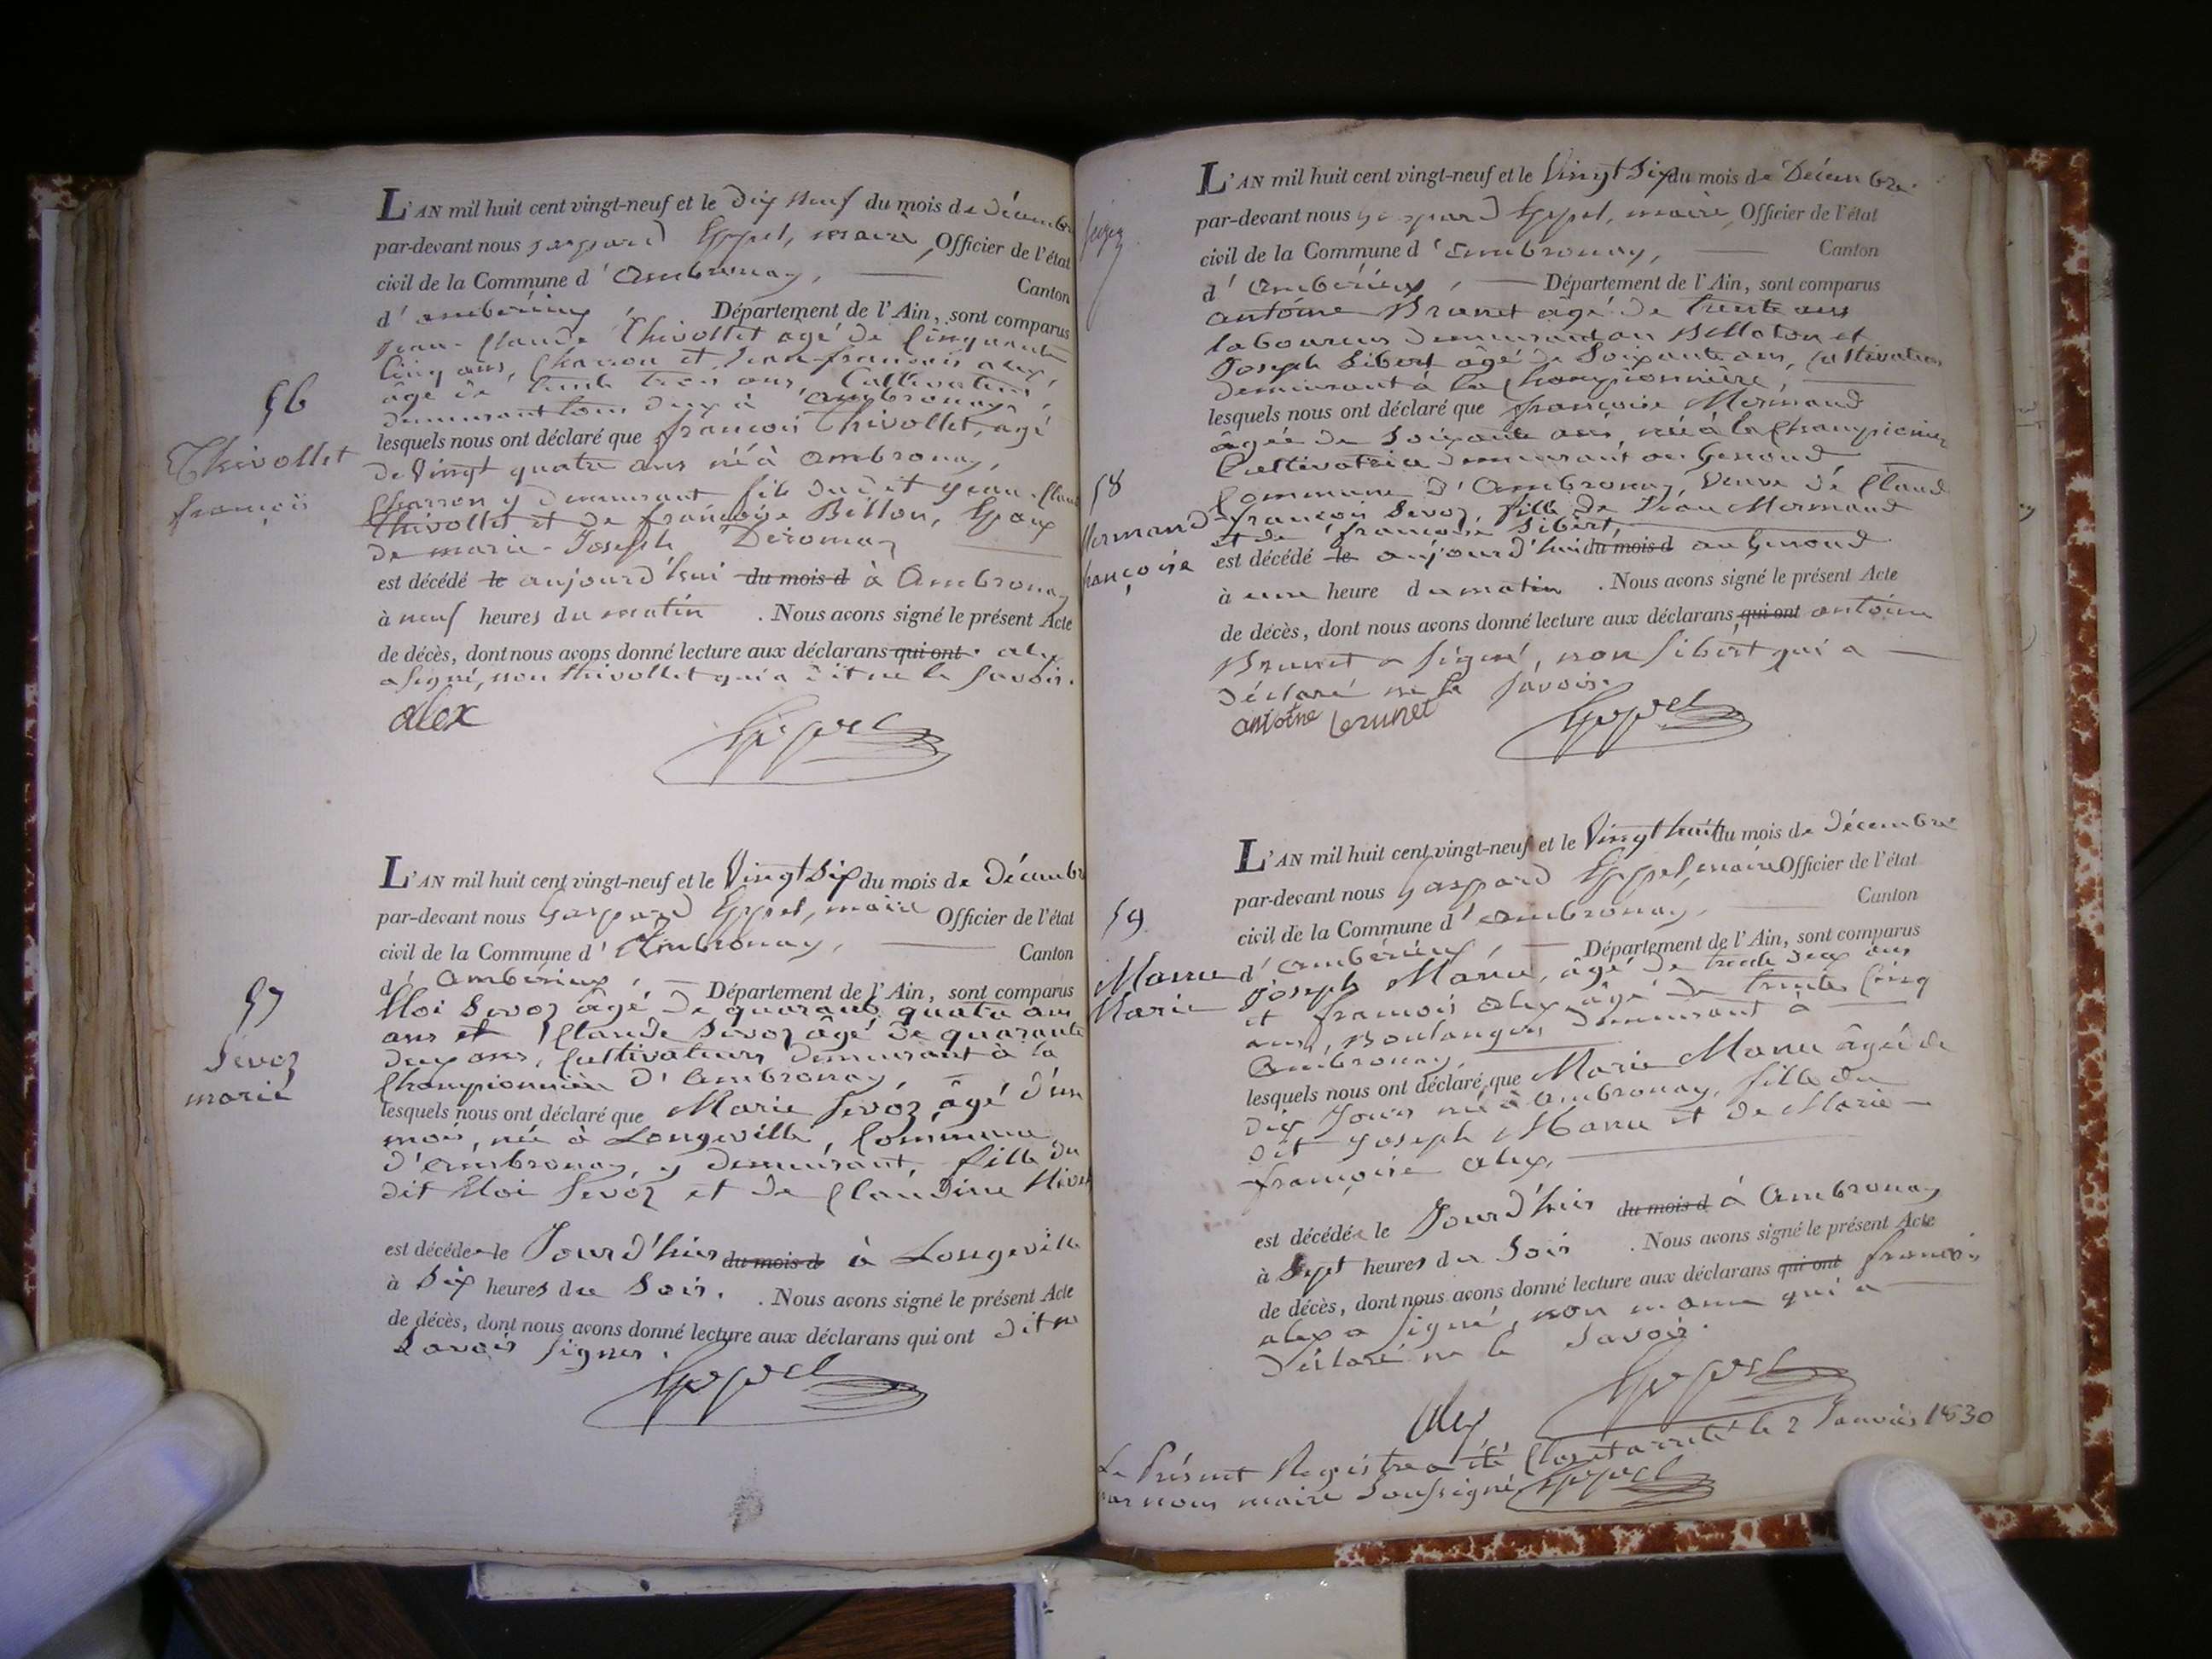 L'AN mil huit cent vingt-neuf et le Dix neuf du mois de Décembre
par-devant nous gaspard Eppel, maire, Officier de l'état
civil de la Commune d'ambronay, Canton
d'ambérieux, Département de l'Ain, sont comparus
Jean-Claude Thivollet agé de Cinquante
Cinq ans, Charron et Jean-françois alex,
âgé de trente trois ans, Cultivateur,
demeurant tous deux à ambronay,
56
Thivollet
françois
lesquels nous ont déclaré que françois Thivollet, agé
de Vingt quatre ans né à ambronay,
Charron y demeurant fils dudit Jean-Claude
Thivollet et de françoise Billon, Epoux
de marie-Joseph Deromay
est décédé le aujourd'hui du mois d à Ambronay
à neuf heures du matin . Nous avons signé le présent Acte
de décès, dont nous avons donné lecture aux déclarans qui ont alex
a signé, non thivollet qui a dit ne le savoir.
alex Eppel
L'AN mil huit cent vingt-neuf et le Vingt Six du mois de Décembre
par-devant nous Gaspard Eppel, maire Officier de l'état
civil de la Commune d'Ambronay, Canton
d'Ambérieux, Département de l'Ain, sont comparus
57
Sevoz
marie
Eloi Sevoz âgé de quarante quatre ans
ans et Claude Sevoz âgé de quarante
deux ans, Cultivateurs demeurant à la
Championnière d'Ambronay,
lesquels nous ont déclaré que Marie Sevoz, âgé d'un
mois, née à Longeville, Commune
d'Ambronay, y demeurant, fille du
dit Eloi Sevoz et de Claudine
est décédée le Jourd'hui du mois d à Longeville
à Six heures du Soir. . Nous avons signé le présent Acte
de décès, dont nous avons donné lecture aux déclarans qui ont dit ne
Savoir signer.
Eppel
L'AN mil huit cent vingt-neuf et le Vingt Six du mois de Décembre
par-devant nous gaspard Eppel, maire, Officier de l'état
civil de la Commune d'ambronay, Canton
d'ambérieux, Département de l'Ain, sont comparus
antoine Brunet âgé de trente ans
laboureur demeurant au Bellaton et
Joseph Sibert âgé de Soixante ans, Cultivateur
demeurant à la Championnière,
58
Mermand
françoise
lesquels nous ont déclaré que françoise Mermand
âgée de Soixante ans, née à la Championière
Cultivatrice demeurant au Genoud
Commune d'Ambronay, Veuve de Claude
françois Sevoz, fille de Jean Mermand
et de françoise Sibert,
est décédé le aujourd'hui du mois d au Genoud
à une heure du matin . Nous avons signé le présent Acte
de décès, dont nous avons donné lecture aux déclarans qui ont antoine
Brunet a signé, non Sibert qui a
déclaré ne le savoir.
antoine brunet Eppel
L'AN mil huit cent vingt-neuf et le Vingt huit du mois de Décembre
par-devant nous Gaspard Eppel, maire Officier de l'état
civil de la Commune d'ambronay, Canton
d'ambérieux, Département de l'Ain, sont comparus
59
Manu
Marie
Joseph Manu, âgé de trente deux ans
et françois alex âgé de trente Cinq
ans, Boulanger demeurant à
Ambronay,
lesquels nous ont déclaré que Marie Manu âgée de
dix Jours née à Ambronay, fille du
dit Joseph Manu et de Marie-
françoise alex,
est décédée le Jourd'hui du mois d à Ambronay
à Sept heures du Soir . Nous avons signé le présent Acte
de décès, dont nous avons donné lecture aux déclarans qui ont françois
alex a signé, non manu qui a
déclaré ne le Savoir.
alex Eppel
Le Présent Registre a été Clos et arrêté le 2 Janvier 1830
par nous maire Soussigné Eppel